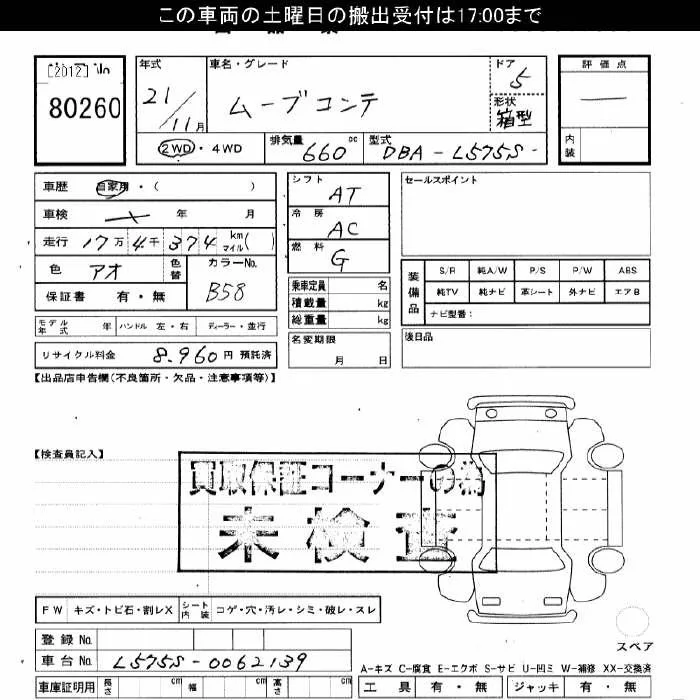 この車両の土曜日の搬出受付は17:00まで
[2012]
80260
年式
21/11月
車名・グレード
ムーブコンテ
ドア
5
形状
箱型
評価点
—
内装
2WD・4WD
排気量
660 cc
型式
DBA-L575S-
車歴 自家用・( )
車検 年 月
走行 17万4千374 km マイル( )
色 アオ 色替
カラーNo.
B58
保証書 有・無
シフト
AT
冷房
AC
燃料
G
乗車定員 名
積載量 kg
総重量 kg
名変期限
月 日
セールスポイント
装備品
S/R 純A/W P/S P/W ABS
純TV 純ナビ 革シート 外ナビ エアB
ナビ型番:
後日品
モデル年式 年 ハンドル 左・右 ディーラー・並行
リサイクル料金 8,960 円 預託済
【出品店申告欄(不良箇所・欠品・注意事項等)】
【検査員記入】
買取保証コーナーの為
未検査
FW キズ・トビ石・割レX シート内装 コゲ・穴・汚レ・シミ・破レ・スレ
登録No.
車台No. L575S-0062139
スペア
A-キズ C-腐食 E-エクボ S-サビ U-凹ミ W-補修 XX-交換済
車庫証明用 長さ cm 幅 cm 高さ cm
工具 有・無 ジャッキ 有・無